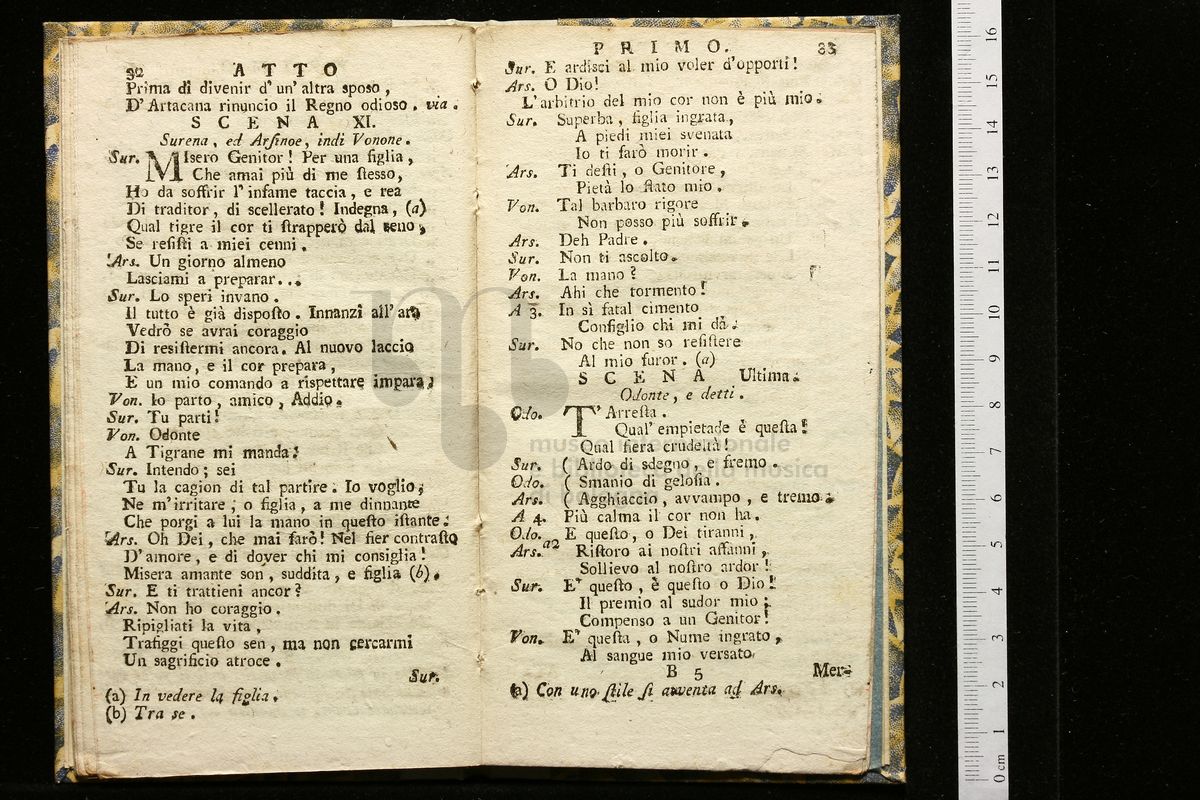 32 ATTO
Prima di divenir d'un' altra sposo,
D'Artacana rinuncio il Regno odioso. via.
SCENA XI.
Surena, ed Arſinoe, indi Vonone.
Sur. MIsero Genitor! Per una figlia,
Che amai più di me ſteſso,
Ho da soffrir l'infame taccia, e rea
Di traditor, di scellerato! Indegna, (a)
Qual tigre il cor ti ſtrapperò dal seno,
Se reſiſti a miei cenni.
Ars. Un giorno almeno
Lasciami a preparar...
Sur. Lo speri invano.
Il tutto è già dispoſto. Innanzi all' ara
Vedrò se avrai coraggio
Di reſiſtermi ancora. Al nuovo laccio
La mano, e il cor prepara,
E un mio comando a rispettare impara;
Von. Io parto, amico, Addio.
Sur. Tu parti!
Von. Odonte
A Tigrane mi manda:
Sur. Intendo; sei
Tu la cagion di tal partire. Io voglio;
Ne m'irritare; o figlia, a me dinnante
Che porgi a lui la mano in queſto iſtante:
Ars. Oh Dei, che mai farò! Nel fier contraſto
D'amore, e di dover chi mi consiglia!
Misera amante son, suddita, e figlia (b).
Sur. E ti trattieni ancor?
Ars. Non ho coraggio.
Ripigliati la vita,
Trafiggi queſto sen, ma non cercarmi
Un sagrificio atroce.
Sur.
(a) In vedere la figlia.
(b) Tra se.
PRIMO. 33
Sur. E ardisci al mio voler d'opporti!
Ars. O Dio!
L'arbitrio del mio cor non è più mio.
Sur. Superba, figlia ingrata,
A piedi miei svenata
Io ti farò morir.
Ars. Ti deſti, o Genitore,
Pietà lo ſtato mio.
Von. Tal barbaro rigore
Non posso più soffrir.
Ars. Deh Padre.
Sur. Non ti ascolto.
Von. La mano?
Ars. Ahi che tormento!
A 3. In sì fatal cimento
Configlio chi mi dà.
Sur. No che non so reſiſtere
Al mio furor. (a)
SCENA Ultima.
Odonte, e detti.
Odo. T'Arreſta.
Qual' empietade è queſta!
Qual fiera crudeltà!
Sur. (Ardo di sdegno, e fremo.
Odo. (Smanio di geloſia.
Ars. (Agghiaccio, avvampo, e tremo.
A 4. Più calma il cor non ha.
Odo. E queſto, o Dei tiranni,
Ars. a2 Riſtoro ai noſtri affanni,
Sollievo al noſtro ardor!
Sur. E' queſto, è queſto o Dio!
Il premio al sudor mio;
Compenso a un Genitor!
Von. E' queſta, o Nume ingrato,
Al sangue mio versato
B 5 Mer-
(a) Con uno ſtile ſi avventa ad Ars.
museo internazionale
e biblioteca della musica
16
15
14
13
12
11
10
9
8
7
6
5
4
3
2
1
0 cm